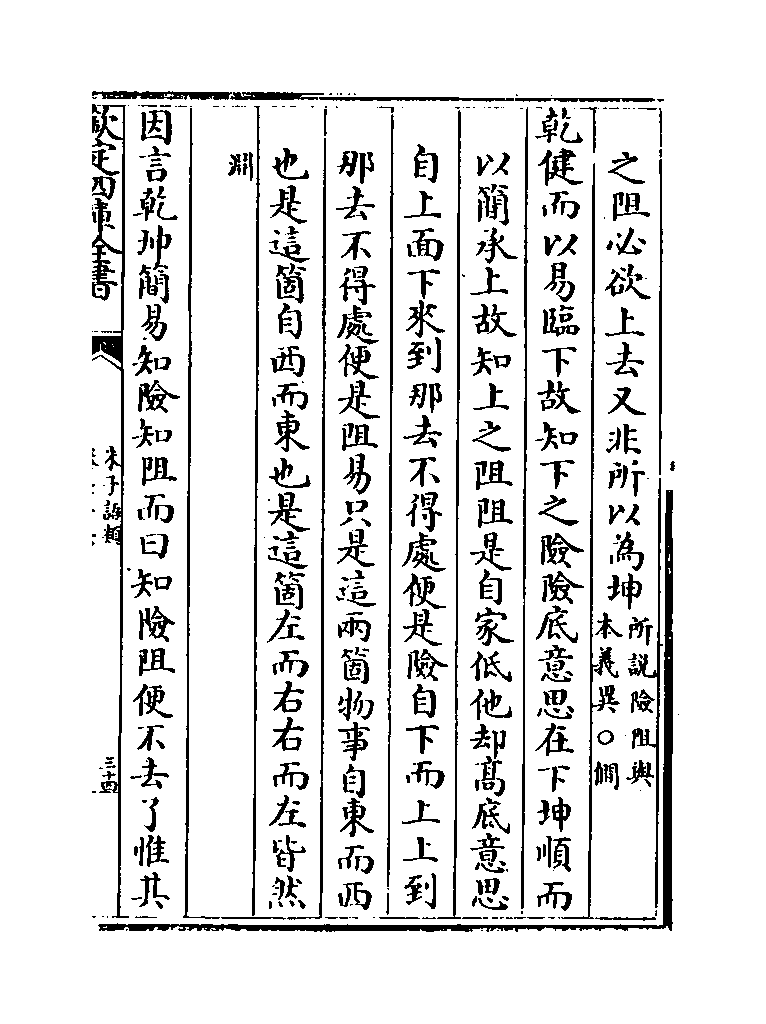 之阻必欲上去又非所以為坤所說險阻與本義異○僩
乾健而以易臨下故知下之險險底意思在下坤順而
以簡承上故知上之阻阻是自家低他却髙底意思
自上面下來到那去不得處便是險自下而上上到
那去不得處便是阻易只是這兩箇物事自東而西
也是這箇自西而東也是這箇左而右右而左皆然
淵
因言乾坤簡易知險知阻而曰知險阻便不去了惟其
欽定四庫全書
朱子語類
三十四